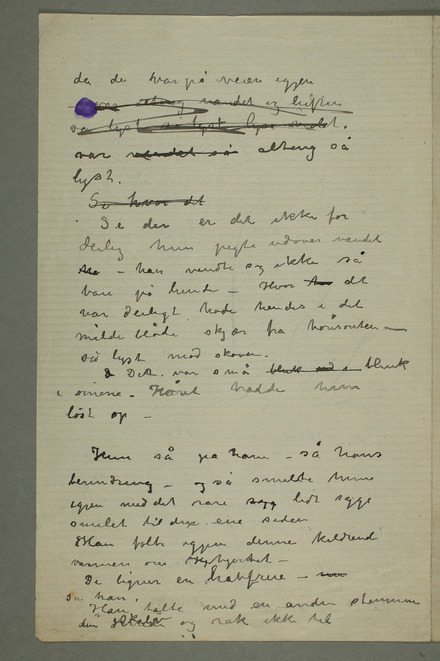 da de var på veien igjen
alting vandet og luften
så lyst
var vandet så alting så
lyst.
Se hvor det
Se der er det ikke for
deilig hun pegte udover vandet
– han vendte sig ikke så
bare på hende – Hvor det
var deiligt hode hendes i det
milde blåe skjær fra horisonten –
så lyst mod skoven.
Det var små blink
i øinene. Håret hadde hun
løst op –
Hun så på ham – så hans
beundring – og så smilte hun
igjen med det rare lidt syge
smilet til den ene siden
Han følte igjen denne kildrend
varmen om hjertet –
De ligner en havfrue –
sa han.
Han talte med en anden stemme
den og rak ikke til